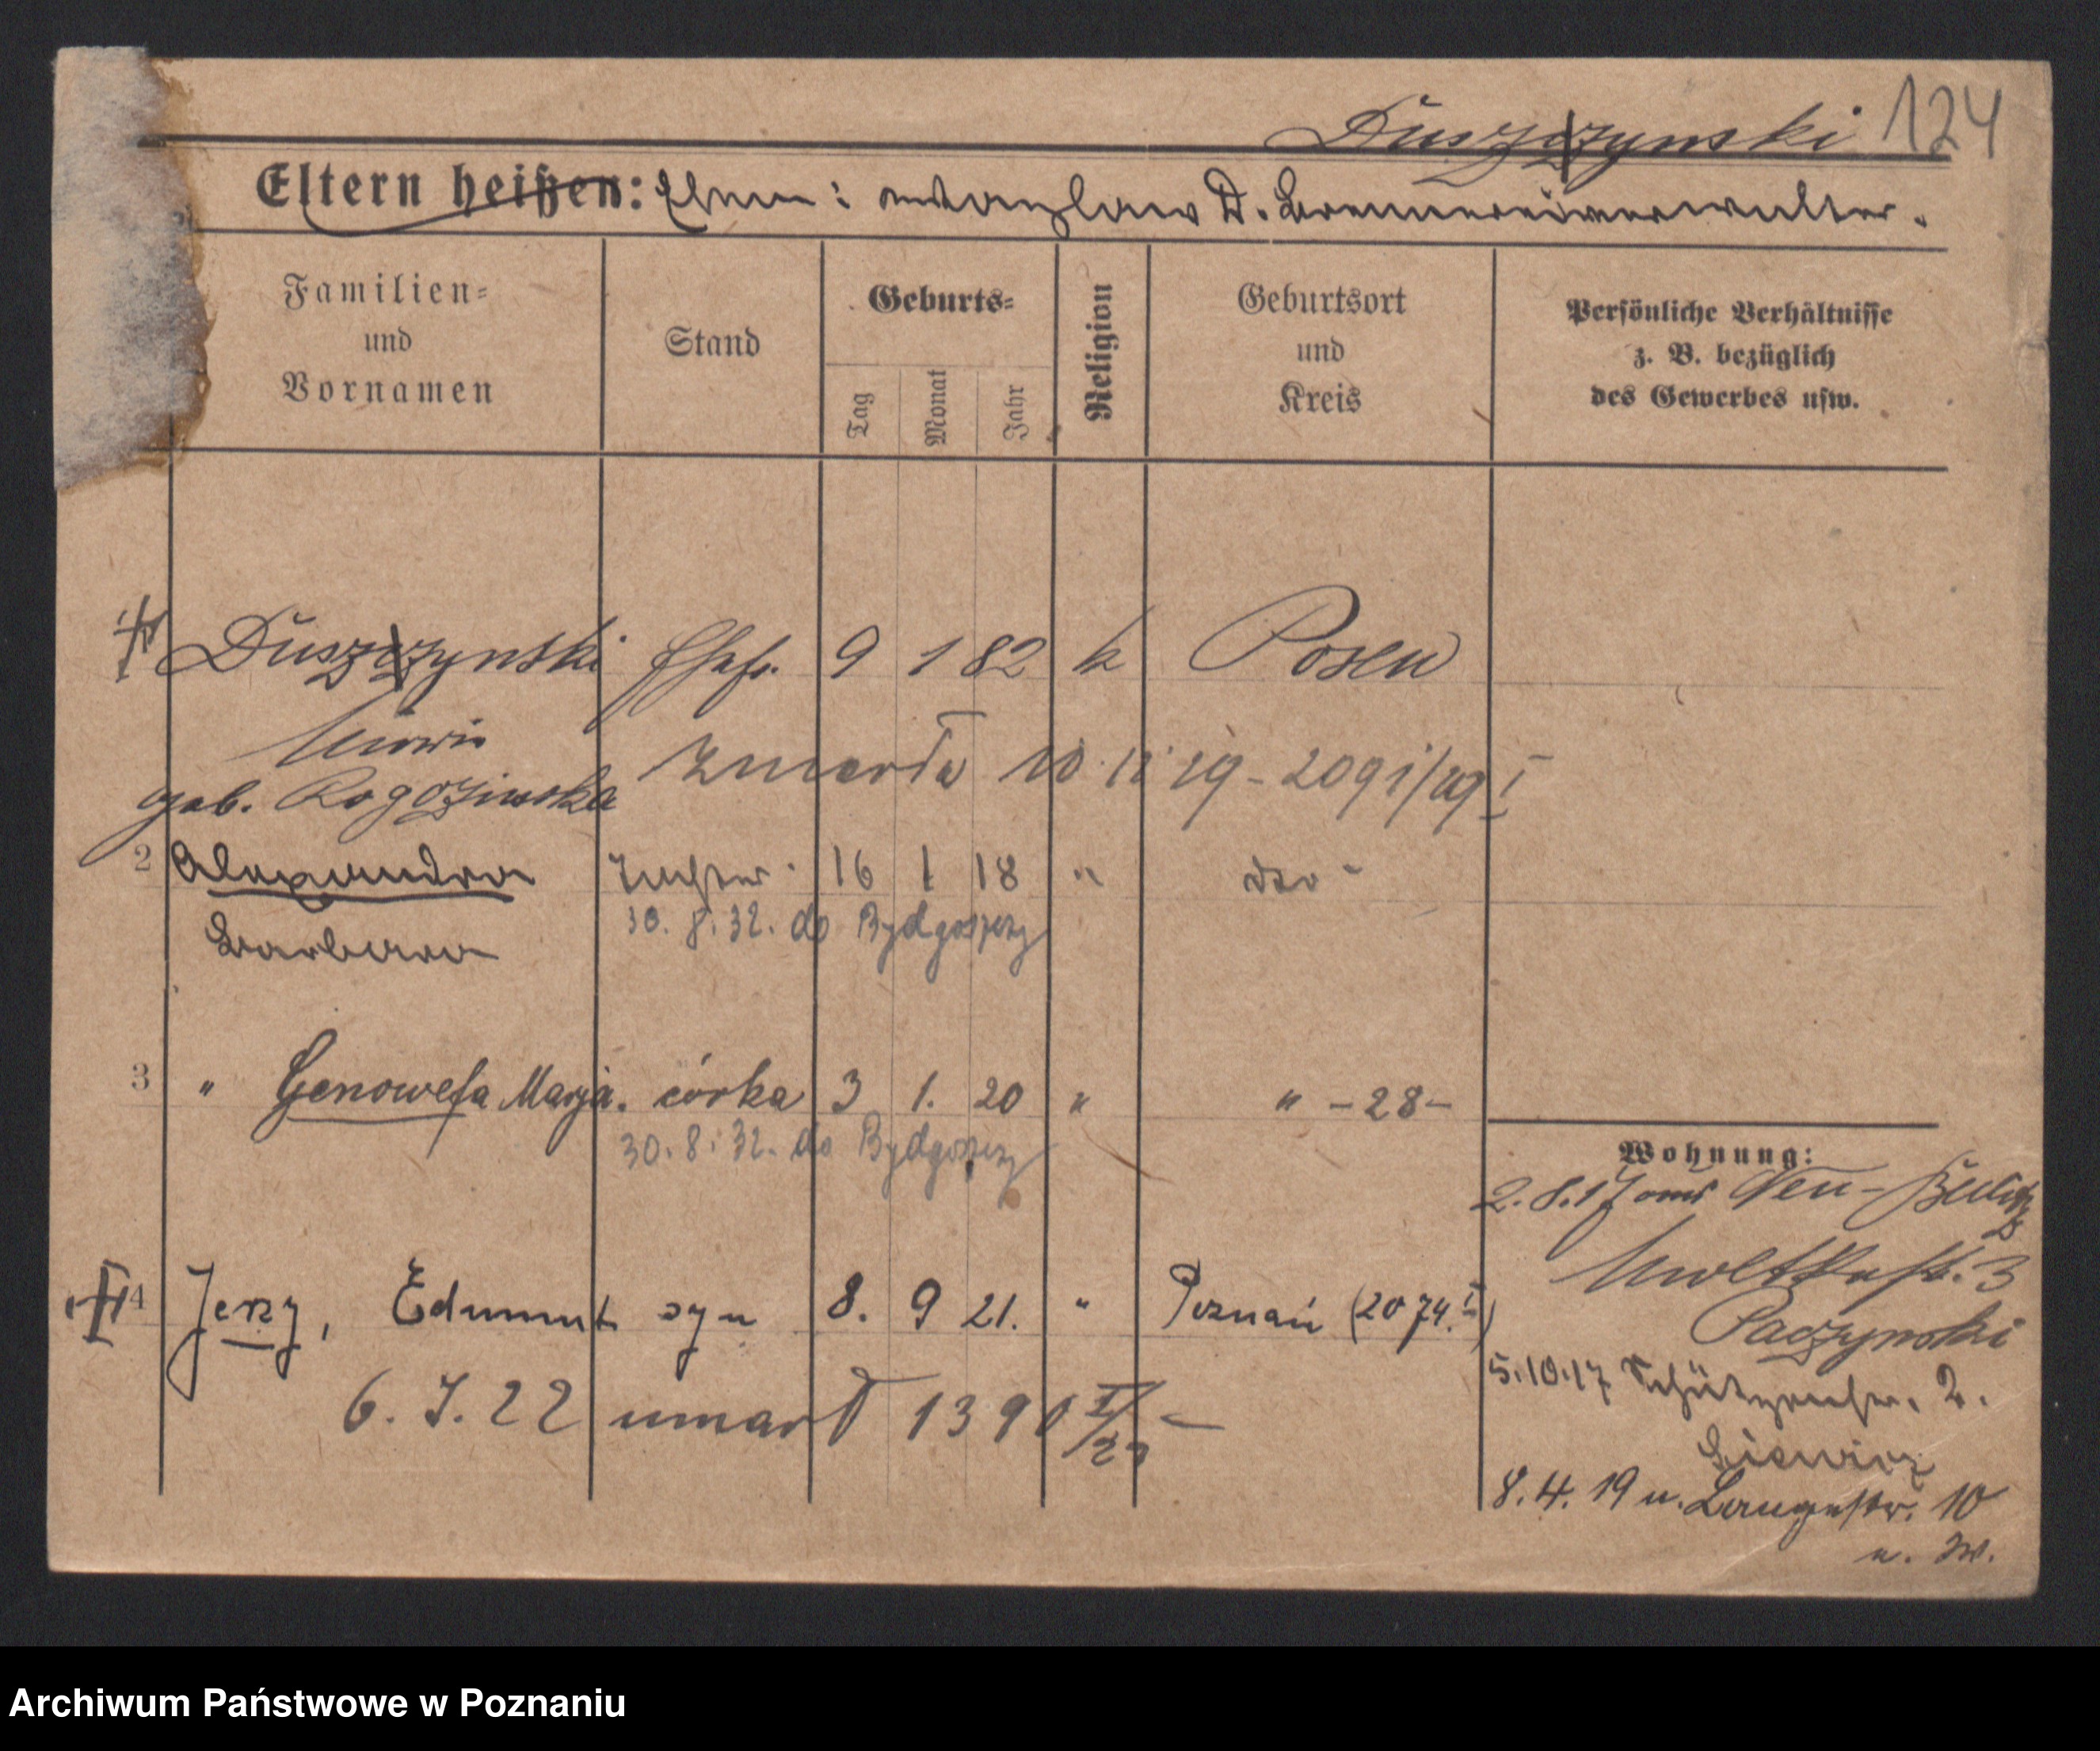 124
Duszczynski
Eltern heißen: Ehem: Wladyslaus D. Brennereiverwalter.
Familien=
und
Vornamen
Stand
Geburts=
Tag
Monat
Jahr
Religion
Geburtsort
und
Kreis
Persönliche Verhältnisse
z. B. bezüglich
des Gewerbes usw.
Duszczynski Ehefr. 9 1 82 k Posen
Maria
geb. Rogozinska zmarła 10. 11 19 - 2091/19 I
2 Alexandra Tochter 16 1 18 " dto
Barbara 30. 8. 32. do Bydgoszczy
3 " Genowefa Marja. córka 3 1. 20 " " - 28 -
30. 8. 32. do Bydgoszczy
4 Jerzy, Edmund syn 8. 9 21. " Poznań (2074. I)
6. 7. 22 umarł 1390 I/22 -
Wohnung:
2. 8. 17 aus Neu-
Moltkestr. 3
Paczynski
5. 10. 17 Schützenstr. 2.
8. 4. 19 u. Langestr. 10
u. W.
Archiwum Państwowe w Poznaniu